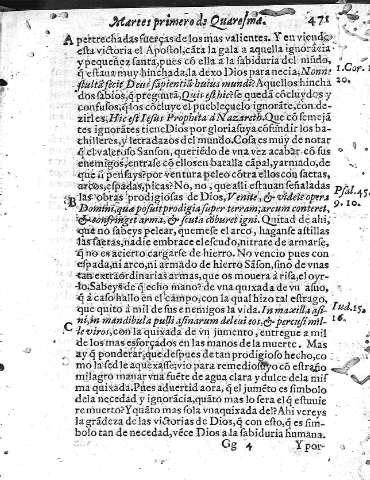 Martes primero de Quaresma. 471
Apertrechadas fuerças de los mas valientes. Y en viendo
esta victoria el Apostol, cāta la gala a aquella ignorācia
y pequeñez santa, pues cō ella a la sabiduria del mūdo,
q̄ estaua muy hinchada, la dexo Dios para necia, Nonne
stultā fecit Deus sapientiā huius mundi? Aquellos hincha
dos sabios, q̄ pregūtā, Quis est hic? quedā cōcluydos y
confusos, q̄ los cōcluye el pueblequelo ignorāte, con de-
zirles, Hic est Iesus Propheta à Nazareth. Que cō semejā
tes ignorātes tiene Dios por gloria suya cōfūdir los ba-
chilleres, y letradazos del mundo. Cosa es muy de notar
q̄ el valeroso Sanson, queriēdo de vna vez acabar cō sus
enemigos, entrase cō ellos en batalla cāpal, y armado, de
que ū pensays? por ventura peleo cōtra ellos con saetas,
arcos, espadas, picas? No, no, que alli estauan señaladas
las obras prodigiosas de Dios, Venite, & videte opera
B
Domini, qua posuit prodigia super terram; arcum conteret,
& confringet arma, & scuta comburet igni. Quitad de ahi,
que no sabeys pelear, quemese el arco, haganse astillas
las saetas, nadie embrace el escudo, nitrate de armarse,
q̄ no es acierto cargarse de hierro. No vencio pues con
espada, ni arco, ni armado de hierro Sāson, sino de vnas
tan extraordinarias armas, que os mouera a risa, el oyr-
lo. Sabeys de q̄ echo mano? de vna quixada de vn asno,
q̄ à caso hallo en el campo, con la qual hizo tal estrago,
que quito à mil de sus enemigos la vida. In maxilla asi
ni, in mandibula pulli asinarum deleui eos, & percusi mil-
C
le viros, con la quixada de vn jumento, entregue a mil
de los mas esforçados en las manos de la muerte. Mas
ay q̄ ponderar, que despues de tan prodigioso hecho, co
mo la sed le aquexasse, vio para remedio suyo cō estraño
milagro manar vna fuēte de agua clara y dulce de la mis
ma quixada. Pues aduertid aora, q̄ el jumēto es simbolo
de la necedad y ignorācia, quāto mas lo sera el q̄ estuuie
re muerto? Y quāto mas sola vna quixada del? Ahi vereys
la grādeza de las victorias de Dios, q̄ con esto, q̄ es sim-
bolo tan de necedad, vēce Dios a la sabiduria humana.
Gg 4 Y por-
1. Cor. 1
20.
Psal. 45.
9. 10.
Iud. 15.
16.